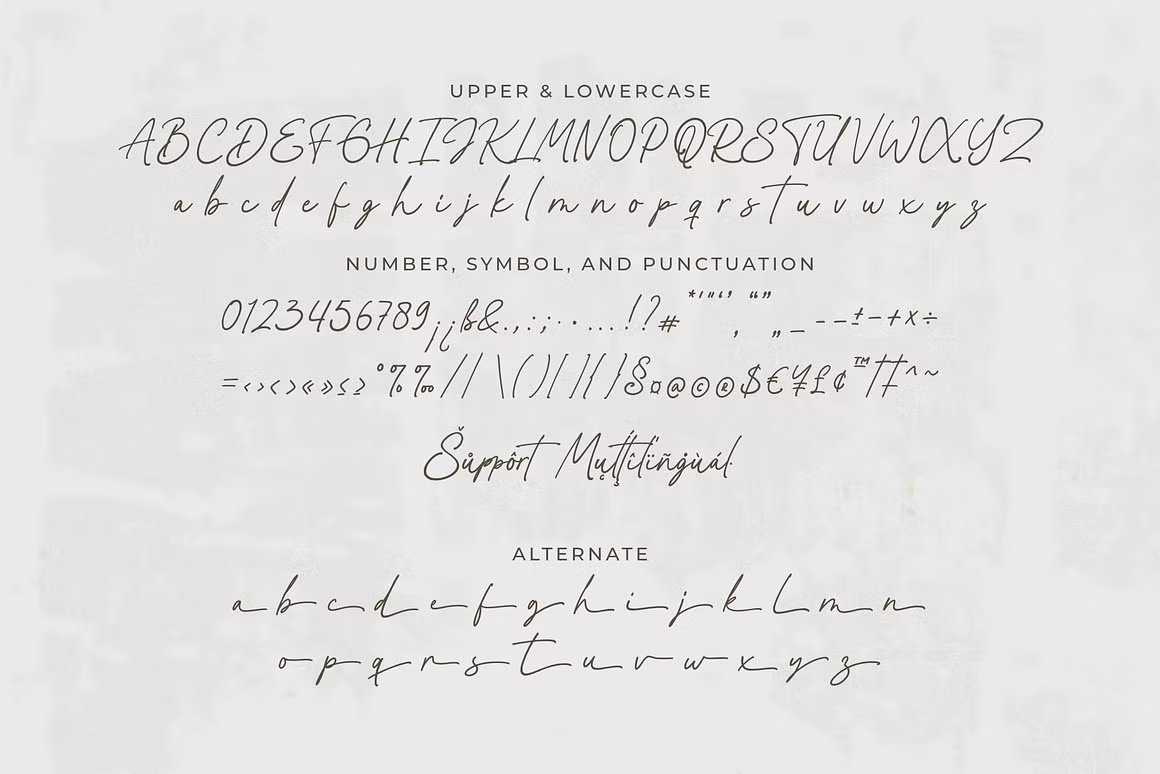 UPPER & LOWERCASE
ABCDEFGHIJKLMNOPQRSTUVWXYZ
a b c d e f g h i j k l m n o p q r s t u v w x y z
NUMBER, SYMBOL, AND PUNCTUATION
0123456789¡¿ß&.,:;·•…!?#*'"‘’“”‚„_-–±−+×÷
=‹›<>«»≤≥°%‰/|\()[]{}§¤@©®$€¥£¢™†‡^~
Šůppôrt Mųltīlïñġùál.
ALTERNATE
a b c d e f g h i j k l m n
o p q r s t u v w x y z